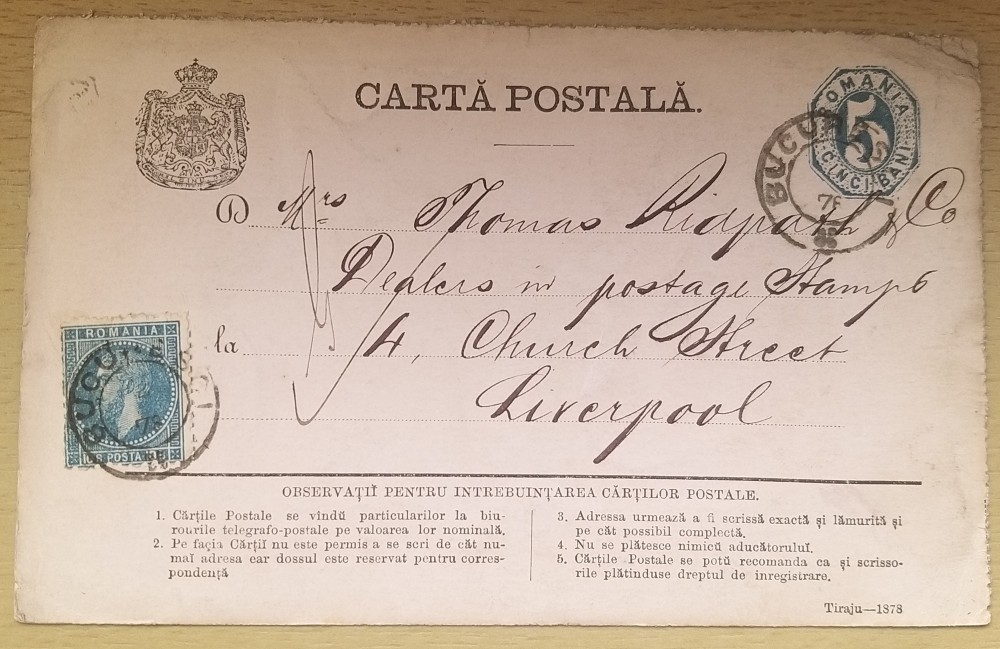 CARTĂ POSTALĂ.
ROMANIA
5
CINCI BANI
BUCUR
78
D Mrs Thomas Ridpath & Co
Dealers in postage Stamps
la 4, Church Street
Liverpool
ROMANIA
BUCURESCI
78
POSTA
OBSERVAȚIĬ PENTRU INTREBUINȚAREA CĂRȚILOR POSTALE.
1. Cărțile Postale se vîndŭ particularilor la biu-
rourile telegrafo-postale pe valoarea lor nominală.
2. Pe facia Cărțiĭ nu este permis a se scri de cât nu-
maĭ adresa ear dossul este reservat pentru cores-
pondență
3. Adressa urmează a fi scrissă exactă și lămurită și
pe cât possibil complectă.
4. Nu se plătesce nimicŭ aducătoruluĭ.
5. Cărțile Postale se potŭ recomanda ca și scrisso-
rile plătinduse dreptul de inregistrare.
Tiraju—1878